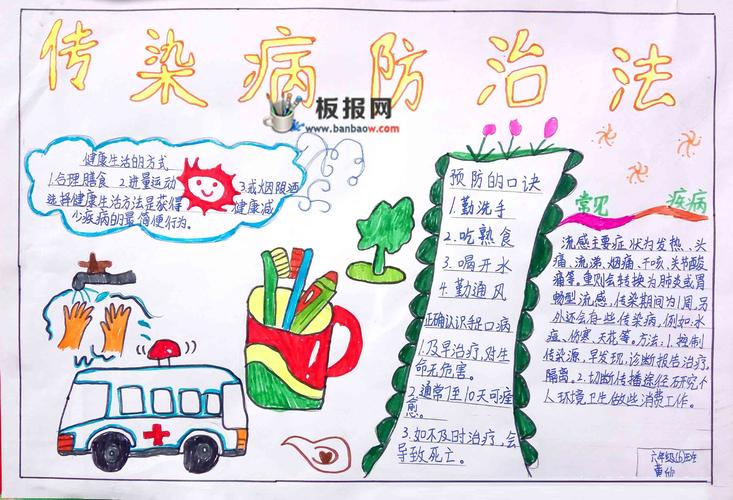 传染病防治法
板报网
www.banbaow.com
健康生活的方式
1.合理膳食 2.进量运动 3.戒烟限酒
选择健康生活方法是获得健康减
少疾病的最简便行为。
预防的口诀
1.勤洗手
2.吃熟食
3.喝开水
4.勤通风
正确认识轻口病
1.及早治疗,对生
命无危害。
2.通常7至10天可痊
愈。
3.如不及时治疗,会
导致死亡。
常见 疾病
流感主要症状为发热、头
痛、流涕、烟痛、干咳、关节酸
痛等。重则会转换为肺炎或胃
肠型流感,传染期间为1周,另
外还会有些传染病,例如:水
痘、伤寒、天花等。方法:1.控制
传染源、早发现、诊断报告治疗,
隔离。2.切断传播途径研究个
人环境卫生做些消费工作。
六年级(6)班